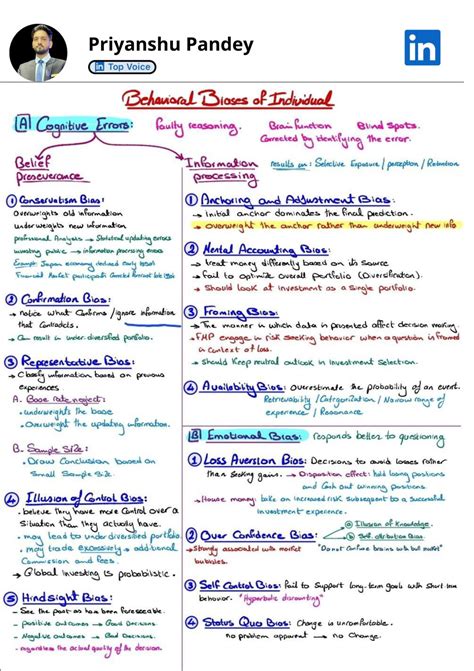 Priyanshu Pandey
in Top Voice
in
Behavioral Biases of Individual
A Cognitive Errors: faulty reasoning. Brain function Blind Spots.
Corrected by identifying the error.
Belief
perseverance
① Conservatism Bias:
Overweights old information
Underweights new information
professional Analysts → Statistical updating errors
investing public → information processing errors
Example: Japan economy
② Confirmation Bias:
→ notice what Confirms / ignore information
that Contradicts.
→ Can result in under diversified portfolio.
③ Representative Bias:
→ Classify information based on previous
experiences
A. Base rate neglect:
- underweights the base
- Overweight the updating information.
B. Sample Size:
- Draw Conclusion based on
Small Sample Size
④ Illusion of Control Bias:
- believe they have more Control over a
Situation than they actually have.
- may lead to under diversified portfolio
- may trade excessively → additional
Commission and fees.
→ Global investing is probabilistic.
⑤ Hindsight Bias:
- See the past as has been foreseeable.
- positive outcomes → Good Decisions.
- Negative outcomes → Bad Decisions.
- regardless the actual quality of the decision
Information
processing
results in: Selective Exposure / perception / Retention
① Anchoring and Adjustment Bias:
→ Initial anchor dominates the final prediction.
→ Overweight the anchor rather than underweight new info
② Mental Accounting Bias:
→ treat money differently based on its source
→ fail to optimize Overall portfolio (Diversification).
→ Should look at investment as a Single portfolio.
③ Framing Bias:
→ The manner in which data is presented affect decision making.
→ FMP engage in risk seeking behavior when a question is framed
in Context of loss.
→ Should Keep neutral outlook in Investment Selection.
④ Availability Bias: Overestimate the probability of an event.
Retrievability / Categorization / Narrow range of
experience / Resonance
B Emotional Bias: responds better to questioning
① Loss Aversion Bias: Decisions to avoid losses rather
than Seeking gains. → Disposition effect: hold losing positions
and Cash out winning positions.
→ House money: take on increased risk Subsequent to a Successful
investment experience.
② Over Confidence Bias:
Illusion of Knowledge.
Self attribution Bias.
→ Strongly associated with market
bubbles.
"Do not Confuse brains with bull market"
③ Self Control Bias: fail to Support long-term goals with Short-term
behavior. "Hyperbolic discounting"
④ Status Quo Bias: Change is uncomfortable.
no problem apparent → no Change.